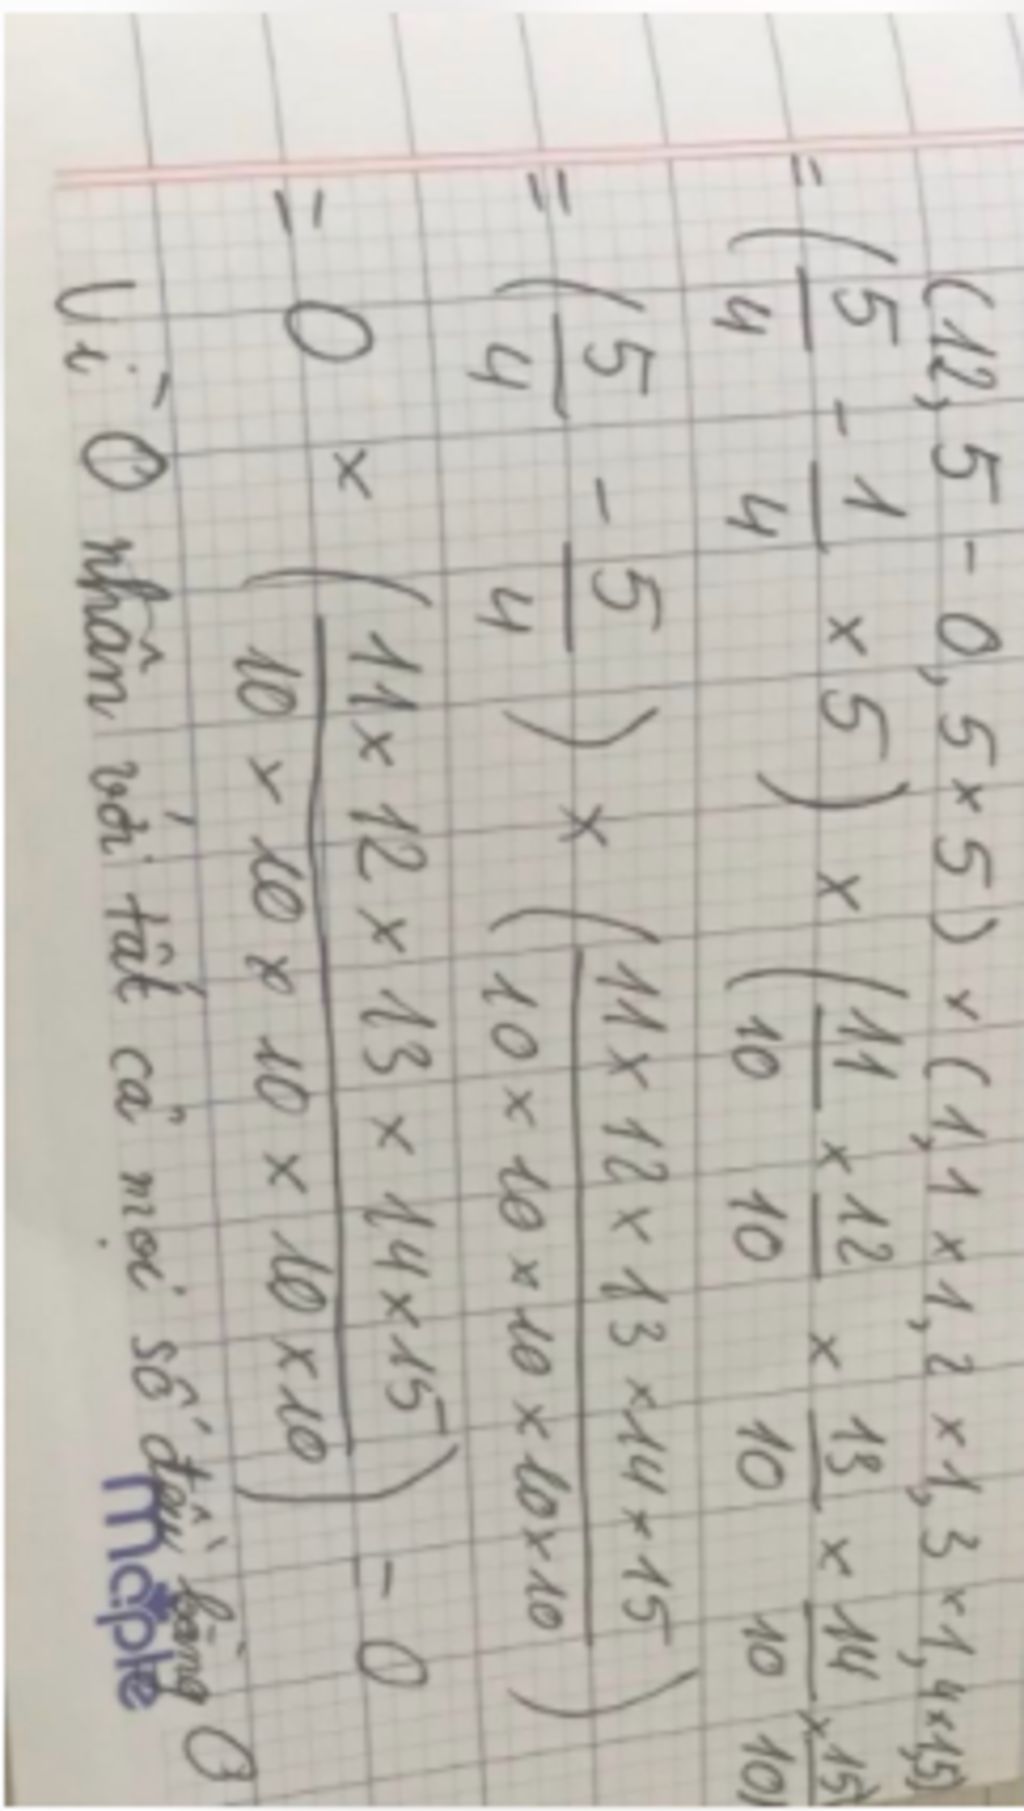 (12,5 - 0,5 × 5) × (1,1 × 1,2 × 1,3 × 1,4 × 1,5)
= (5/4 - 1/4 × 5) × (11/10 × 12/10 × 13/10 × 14/10 × 15/10)
= (5/4 - 5/4) × (11 × 12 × 13 × 14 × 15 / 10 × 10 × 10 × 10 × 10)
= 0 × (11 × 12 × 13 × 14 × 15 / 10 × 10 × 10 × 10 × 10) = 0
Vì 0 nhân với tất cả mọi số đều bằng 0
maple